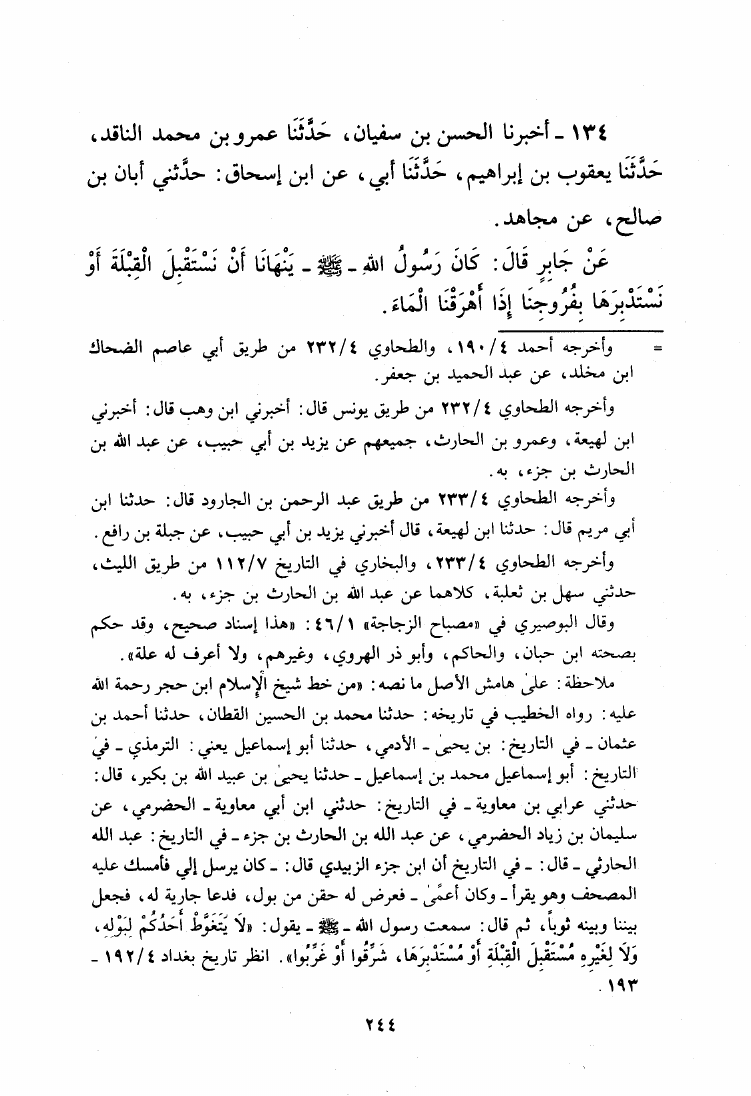 ١٣٤ ـ أخبرنا الحسن بن سفيان، حَدَّثَنَا عمرو بن محمد الناقد،
حَدَّثَنَا يعقوب بن إبراهيم، حَدَّثَنَا أبي، عن ابن إسحاق: حدَّثني أبان بن
صالح، عن مجاهد.
عَنْ جَابِرٍ قَالَ: كَانَ رَسُولُ اللهِ ـ ﷺ ـ يَنْهَانَا أَنْ نَسْتَقْبِلَ الْقِبْلَةَ أَوْ
نَسْتَدْبِرَهَا بِفُرُوجِنَا إِذَا أَهْرَقْنَا الْمَاءَ.
= وأخرجه أحمد ٤/ ١٩٠، والطحاوي ٤/ ٢٣٢ من طريق أبي عاصم الضحاك
ابن مخلد، عن عبد الحميد بن جعفر.
وأخرجه الطحاوي ٤/ ٢٣٢ من طريق يونس قال: أخبرني ابن وهب قال: أخبرني
ابن لهيعة، وعمرو بن الحارث، جميعهم عن يزيد بن أبي حبيب، عن عبد الله بن
الحارث بن جزء، به.
وأخرجه الطحاوي ٤/ ٢٣٣ من طريق عبد الرحمن بن الجارود قال: حدثنا ابن
أبي مريم قال: حدثنا ابن لهيعة، قال أخبرني يزيد بن أبي حبيب، عن جبلة بن رافع.
وأخرجه الطحاوي ٤/ ٢٣٣، والبخاري في التاريخ ٧/ ١١٢ من طريق الليث،
حدثني سهل بن ثعلبة، كلاهما عن عبد الله بن الحارث بن جزء، به.
وقال البوصيري في «مصباح الزجاجة» ١/ ٤٦: «هذا إسناد صحيح، وقد حكم
بصحته ابن حبان، والحاكم، وأبو ذر الهروي، وغيرهم، ولا أعرف له علة».
ملاحظة: على هامش الأصل ما نصه: «من خط شيخ الإسلام ابن حجر رحمة الله
عليه: رواه الخطيب في تاريخه: حدثنا محمد بن الحسين القطان، حدثنا أحمد بن
عثمان ـ في التاريخ: بن يحيى ـ الأدمي، حدثنا أبو إسماعيل يعني: الترمذي ـ في
التاريخ: أبو إسماعيل محمد بن إسماعيل ـ حدثنا يحيى بن عبيد الله بن بكير، قال:
حدثني عرابي بن معاوية ـ في التاريخ: حدثني ابن أبي معاوية ـ الحضرمي، عن
سليمان بن زياد الحضرمي، عن عبد الله بن الحارث بن جزء ـ في التاريخ: عبد الله
الحارثي ـ قال: ـ في التاريخ أن ابن جزء الزبيدي قال: ـ كان يرسل إلي فأمسك عليه
المصحف وهو يقرأ ـ وكان أعمى ـ فعرض له حقن من بول، فدعا جارية له، فجعل
بيننا وبينه ثوباً، ثم قال: سمعت رسول الله ـ ﷺ ـ يقول: «لَا يَتَغَوَّطْ أَحَدُكُمْ لِبَوْلِهِ،
وَلَا لِغَيْرِهِ مُسْتَقْبِلَ الْقِبْلَةِ أَوْ مُسْتَدْبِرَهَا، شَرِّقُوا أَوْ غَرِّبُوا». انظر تاريخ بغداد ٤/ ١٩٢ ـ
١٩٣.
٢٤٤